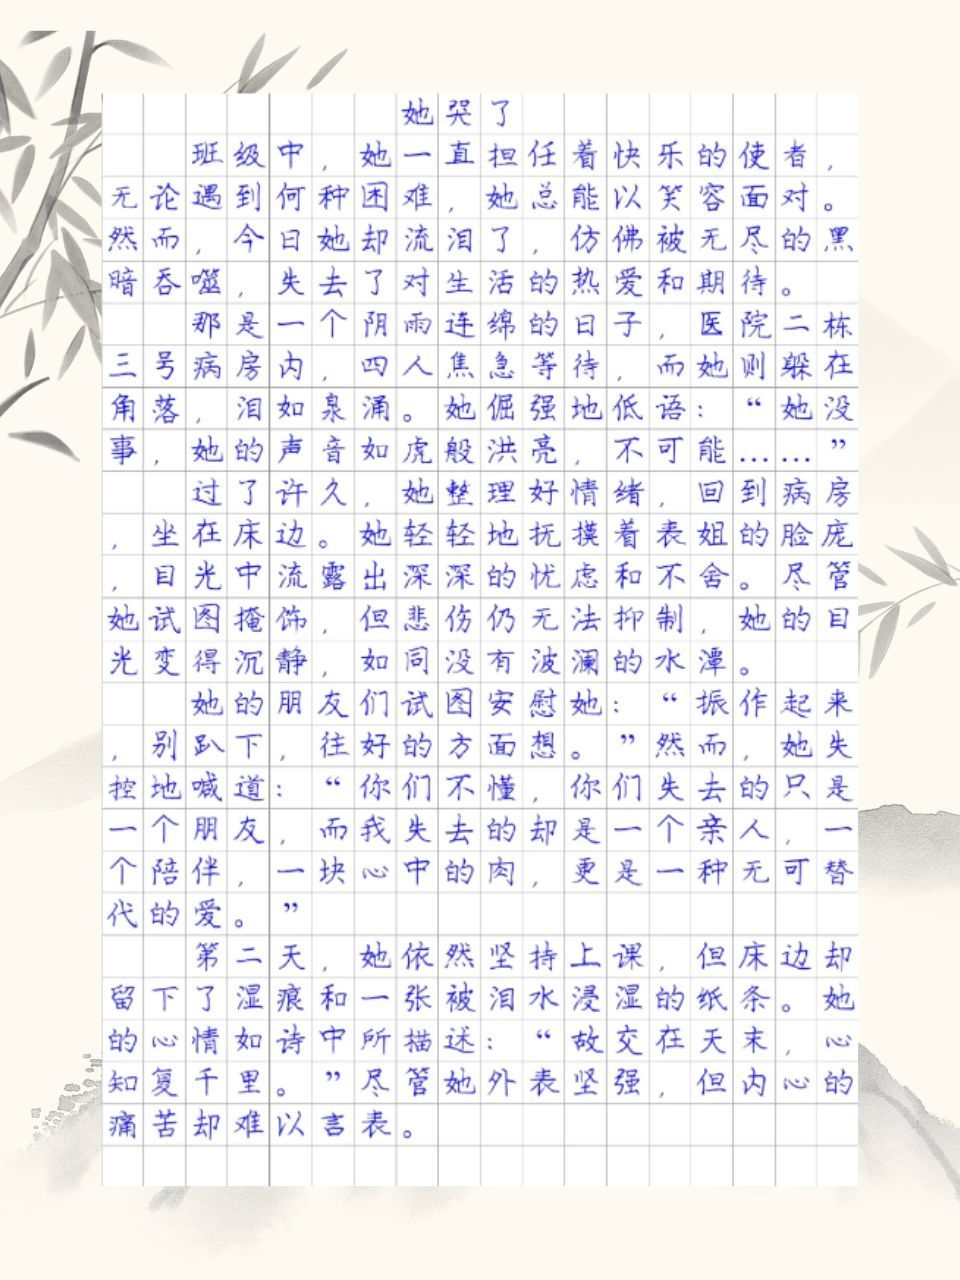 她哭了
班级中，她一直担任着快乐的使者，
无论遇到何种困难，她总能以笑容面对。
然而，今日她却流泪了，仿佛被无尽的黑
暗吞噬，失去了对生活的热爱和期待。
那是一个阴雨连绵的日子，医院二栋
三号病房内，四人焦急等待，而她则躲在
角落，泪如泉涌。她倔强地低语：“她没
事，她的声音如虎般洪亮，不可能……”
过了许久，她整理好情绪，回到病房
，坐在床边。她轻轻地抚摸着表姐的脸庞
，目光中流露出深深的忧虑和不舍。尽管
她试图掩饰，但悲伤仍无法抑制，她的目
光变得沉静，如同没有波澜的水潭。
她的朋友们试图安慰她：“振作起来
，别趴下，往好的方面想。”然而，她失
控地喊道：“你们不懂，你们失去的只是
一个朋友，而我失去的却是一个亲人，一
个陪伴，一块心中的肉，更是一种无可替
代的爱。”
第二天，她依然坚持上课，但床边却
留下了湿痕和一张被泪水浸湿的纸条。她
的心情如诗中所描述：“故交在天末，心
知复千里。”尽管她外表坚强，但内心的
痛苦却难以言表。